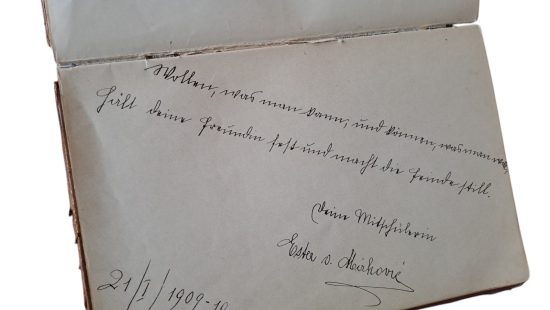 Wollen, was man kann, und können, was man will,
hält deine Freundin fest und macht die Feinde still.
Deine Mitschülerin
Ester v.
21/I/1909-10